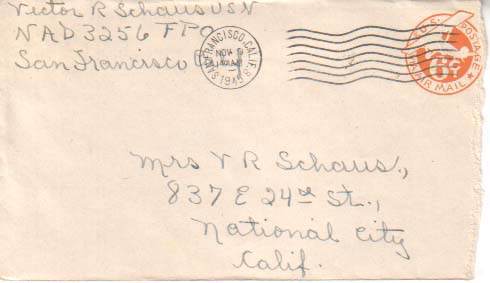 Victor R Schaus USN
NAD 3256 FPO
San Francisco
SAN FRANCISCO, CALIF.
NOV
U.S. POSTAGE
6¢
AIR MAIL
Mrs V R Schaus,
837 E 24th St.,
National City
Calif.